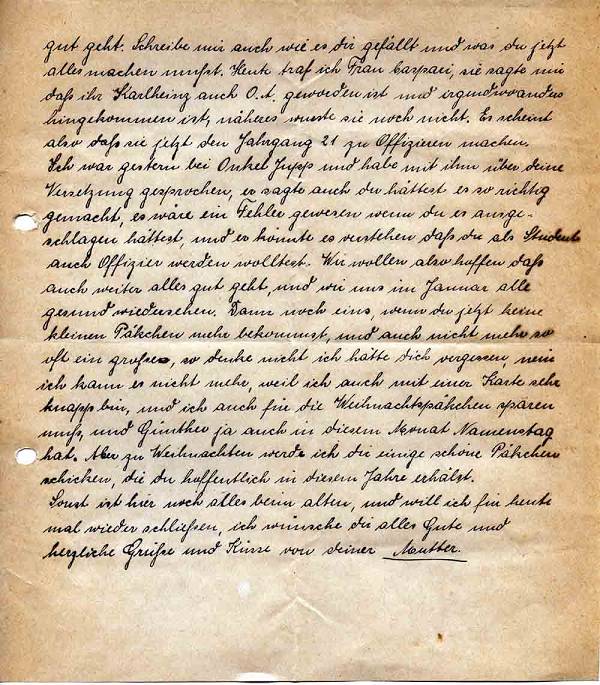 gut geht. Schreibe mir auch wie es dir gefällt und was du jetzt
alles machen mußt. Heute traf ich Frau Caspari, sie sagte mir
daß ihr Karlheinz auch O.A. geworden ist und irgendwoanders
hingekommen ist, näheres wuste sie noch nicht. Es scheint
also daß sie jetzt den Jahrgang 21 zu Offizieren machen.
Ich war gestern bei Onkel Jupp und habe mit ihm über deine
Versetzung gesprochen, er sagte auch du hättest es so richtig
gemacht, es wäre ein Fehler gewesen wenn du es ausge-
schlagen hättest, und er könnte es verstehen daß du als Student
auch Offizier werden wolltest. Wir wollen also hoffen daß
auch weiter alles gut geht, und wir uns im Januar alle
gesund wiedersehen. Dann noch eins, wenn du jetzt keine
kleinen Päkchen mehr bekommst, und auch nicht mehr so
oft ein großes, so denke nicht ich hätte dich vergessen, nein
ich kann es nicht mehr, weil ich auch mit einer Karte sehr
knapp bin, und ich auch für die Weihnachtspäkchen spären
muß, und Günther ja auch in diesem Monat Namenstag
hat. Aber zu Weihnachten werde ich dir einige schöne Päkchen
schicken, die du hoffentlich in diesem Jahre erhälst.
Sonst ist hier noch alles beim alten, und will ich für heute
mal wieder schließen, ich wünsche dir alles Gute und
herzliche Grüße und Küsse von deiner Mutter.